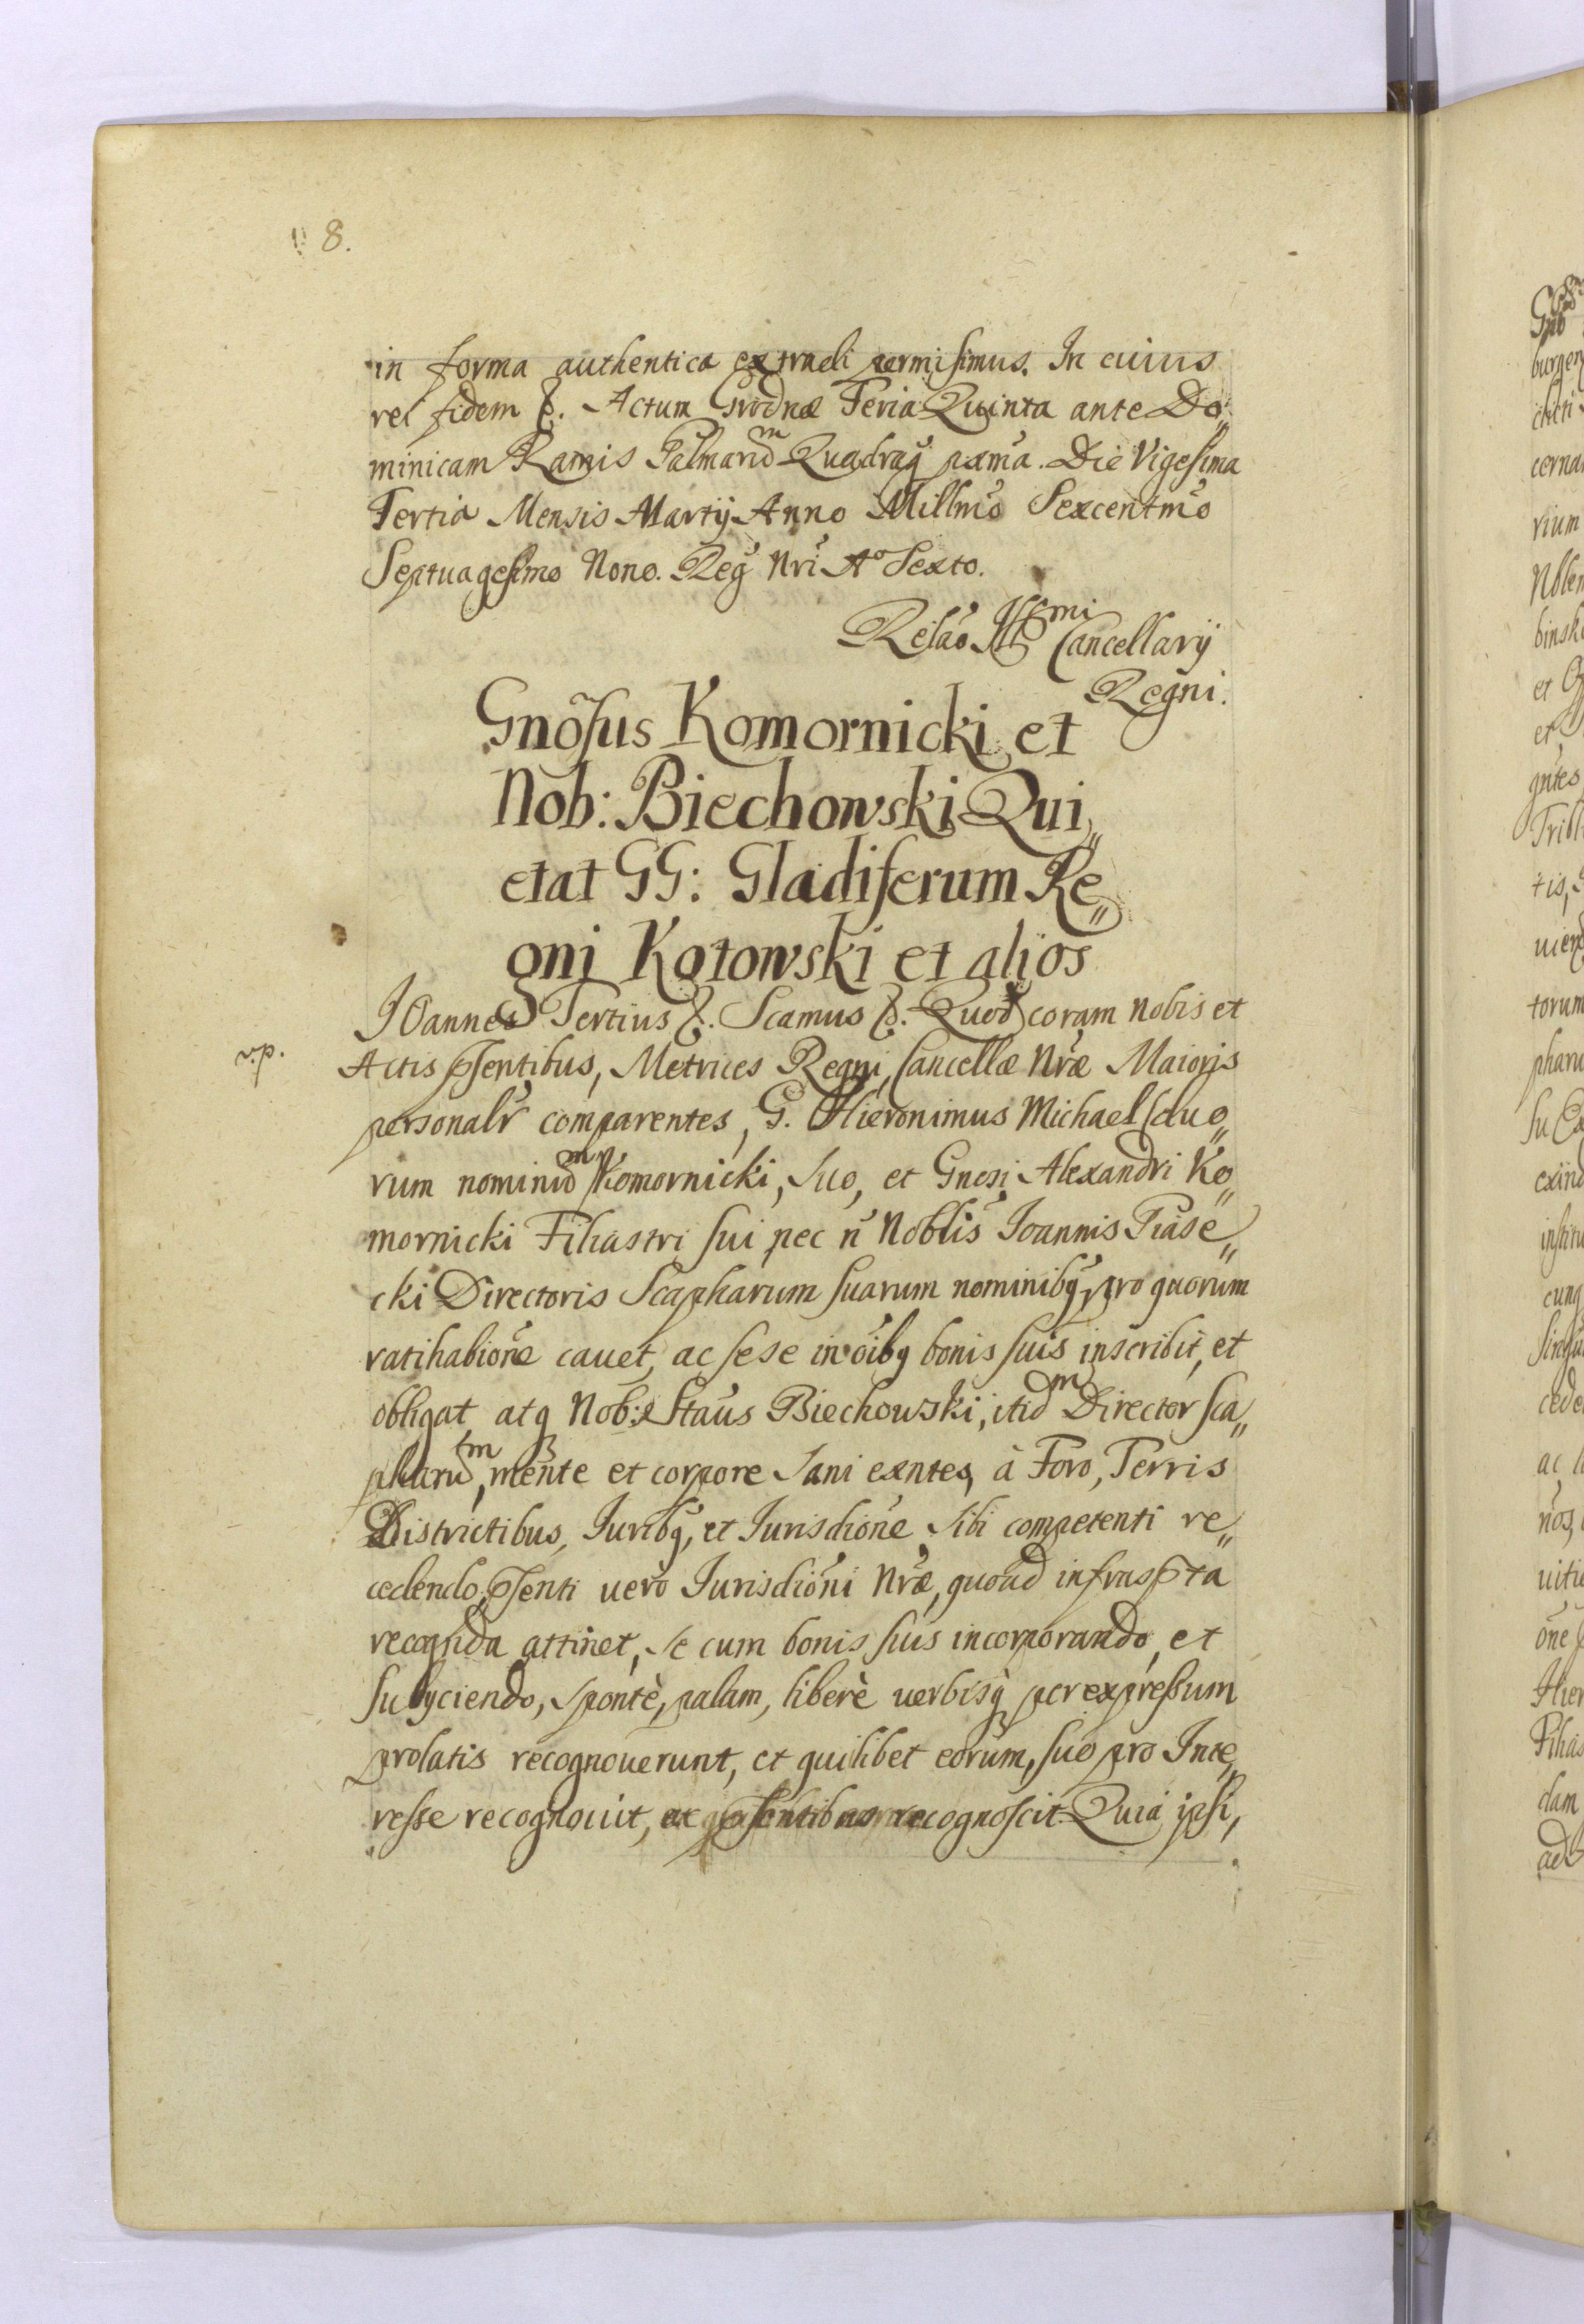 8.
in forma authentica extradi permisimus. In cuius
rei fidem &. Actum Grodnæ Feria Quinta ante Do„
minicam Ramis Palmarũm Quadrag̃ pxm̃a. Die Vigesima
Tertia Mensis Martij Anno Millm̃o Sexcentm̃o
Septuagesimo Nono. Reg̃ Nrĩ Aº Sexto.
Relaõ Illmi Cancellarij
Regni.
Gnõsus Komornicki et
Nob: Biechowski Qui„
etat GG: Gladiferum Re„
gni Kotowski et alios
v.p.
IOannes Tertius &. Scamus &. Quod coram nobis et
Actis p̃sentibus, Metrices Regni, Cancellæ Nr̃æ Maioris
personalr̃ comparentes, G. Hieronimus Michael duo„
rum nominũm Komornicki, suo, et Gnosi Alexandri Ko„
mornicki Filiastri sui, nec ñ Nobl̃is Ioannis Piase„
cki Directoris Scapharum suarum nominibq̃, pro quorum
ratihabiõne cauet, ac sese in oĩbq bonis suis inscribit, et
obligat, atq Nob: Staũs Biechowski, itidm Director sca„
pharum, mente et corpore sani exñtes, à Foro, Terris
Districtibus, Juribq̃, et Jurisdiõne sibi competenti re„
cedendo, p̃senti uero Jurisdiõni Nr̃æ, quoad infrasp̃ta
recognda attinet, se cum bonis suis incorporando, et
subijciendo, spontè, palam, liberè uerbisq̃ per expressum
prolatis recognouerunt, et quilibet eorum, suo pro Inte„
resse recognouit, ac p̃sentibus recognoscit. Quia ipsi,